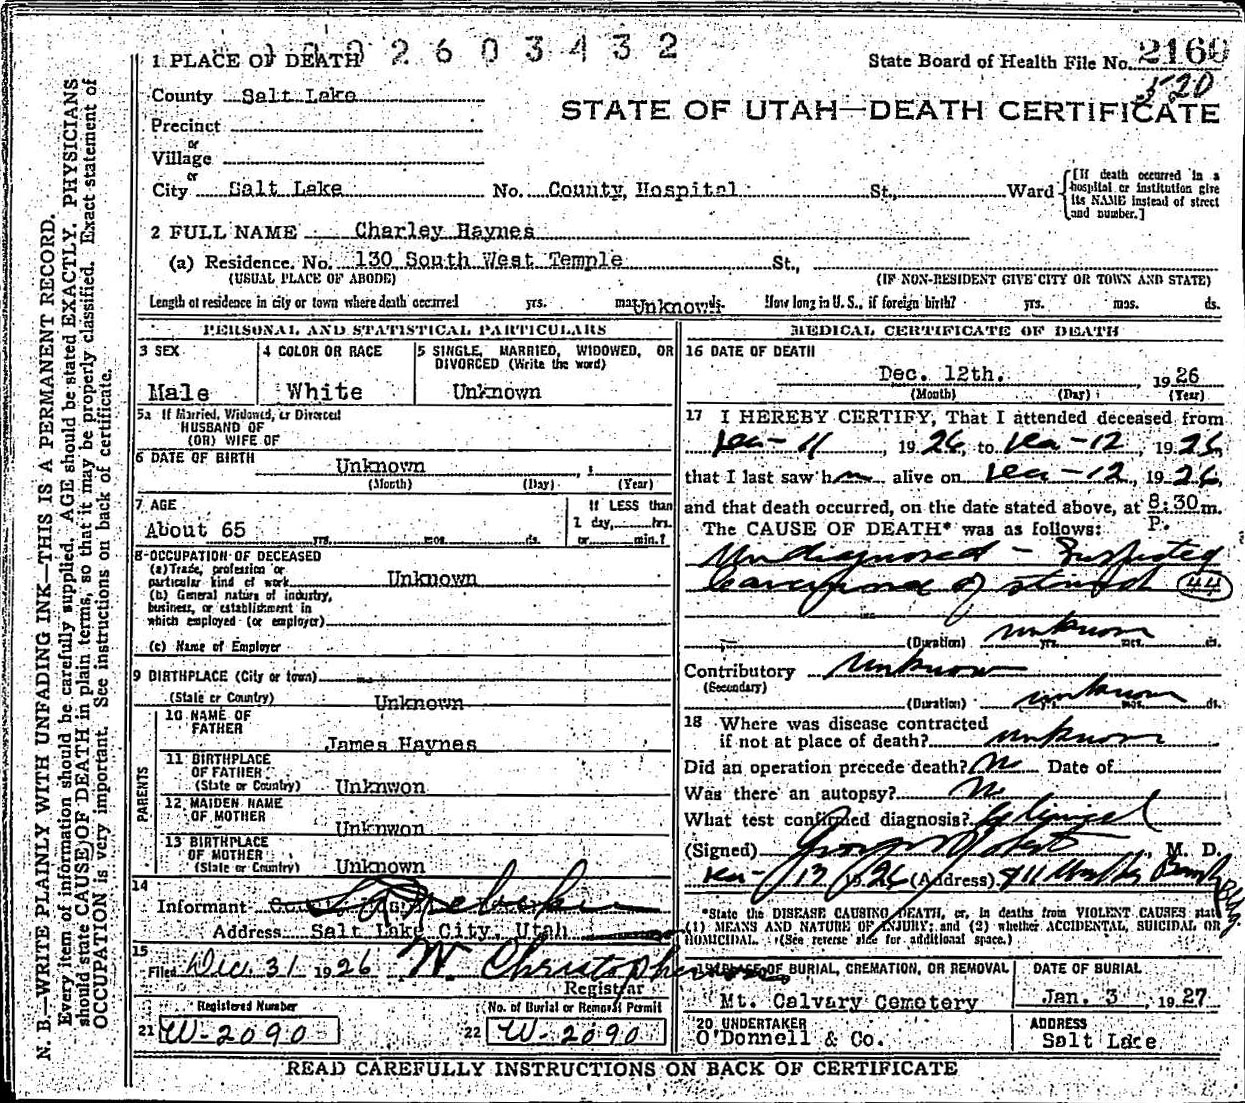 2 6 0 3 4 3 2
1 PLACE OF DEATH
State Board of Health File No. 2160
520
County Salt Lake
STATE OF UTAH—DEATH CERTIFICATE
Precinct
or
Village
or
City Salt Lake No. County, Hospital St., Ward
[If death occurred in a hospital or institution give its NAME instead of street and number.]
2 FULL NAME Charley Haynes
(a) Residence. No. 130 South West Temple St.,
(USUAL PLACE OF ABODE) (IF NON-RESIDENT GIVE CITY OR TOWN AND STATE)
Length of residence in city or town where death occurred yrs. mos. Unknown ds. How long in U. S., if foreign birth? yrs. mos. ds.
PERSONAL AND STATISTICAL PARTICULARS
3 SEX
Male
4 COLOR OR RACE
White
5 SINGLE, MARRIED, WIDOWED, OR
DIVORCED (Write the word)
Unknown
5a If Married, Widowed, or Divorced
HUSBAND OF
(OR) WIFE OF
6 DATE OF BIRTH Unknown
(Month) (Day) (Year)
7 AGE
About 65
yrs. mos. ds.
If LESS than
1 day, hrs.
or min.?
8 OCCUPATION OF DECEASED
(a) Trade, profession or
particular kind of work Unknown
(b) General nature of industry,
business, or establishment in
which employed (or employer)
(c) Name of Employer
9 BIRTHPLACE (City or town)
(State or Country) Unknown
PARENTS
10 NAME OF
FATHER
James Haynes
11 BIRTHPLACE
OF FATHER
(State or Country) Unknwon
12 MAIDEN NAME
OF MOTHER
Unknwon
13 BIRTHPLACE
OF MOTHER
(State or Country) Unknown
14
Informant
Address Salt Lake City, Utah
15
Filed Dec. 31 1926 W. Christopherson
Registrar
Registered Number
21 W-2090
No. of Burial or Removal Permit
22 W-2090
MEDICAL CERTIFICATE OF DEATH
16 DATE OF DEATH
Dec. 12th. , 1926
(Month) (Day) (Year)
17 I HEREBY CERTIFY, That I attended deceased from
Dec - 11 , 1926, to Dec - 12 , 1926,
that I last saw him alive on Dec - 12 , 1926,
and that death occurred, on the date stated above, at 8:30 m.
P.
The CAUSE OF DEATH* was as follows:
Undiagnosed - Suspected
Carcinoma of stomach (44)
(Duration) unknown yrs. mos. ds.
Contributory unknown
(Secondary)
(Duration) unknown yrs. mos. ds.
18 Where was disease contracted
if not at place of death? unknown
Did an operation precede death? No Date of
Was there an autopsy? No
What test confirmed diagnosis? Clinical
(Signed) , M. D.
Dec - 17 1926 (Address) Bldg
*State the DISEASE CAUSING DEATH, or, in deaths from VIOLENT CAUSES state
(1) MEANS AND NATURE OF INJURY; and (2) whether ACCIDENTAL, SUICIDAL OR
HOMICIDAL. (See reverse side for additional space.)
19 PLACE OF BURIAL, CREMATION, OR REMOVAL
Mt. Calvary Cemetery
DATE OF BURIAL
Jan. 3 , 1927
20 UNDERTAKER
O'Donnell & Co.
ADDRESS
Salt Lake
READ CAREFULLY INSTRUCTIONS ON BACK OF CERTIFICATE
N. B.—WRITE PLAINLY WITH UNFADING INK—THIS IS A PERMANENT RECORD.
Every item of information should be carefully supplied. AGE should be stated EXACTLY. PHYSICIANS
should state CAUSE OF DEATH in plain terms, so that it may be properly classified. Exact statement of
OCCUPATION is very important. See instructions on back of certificate.